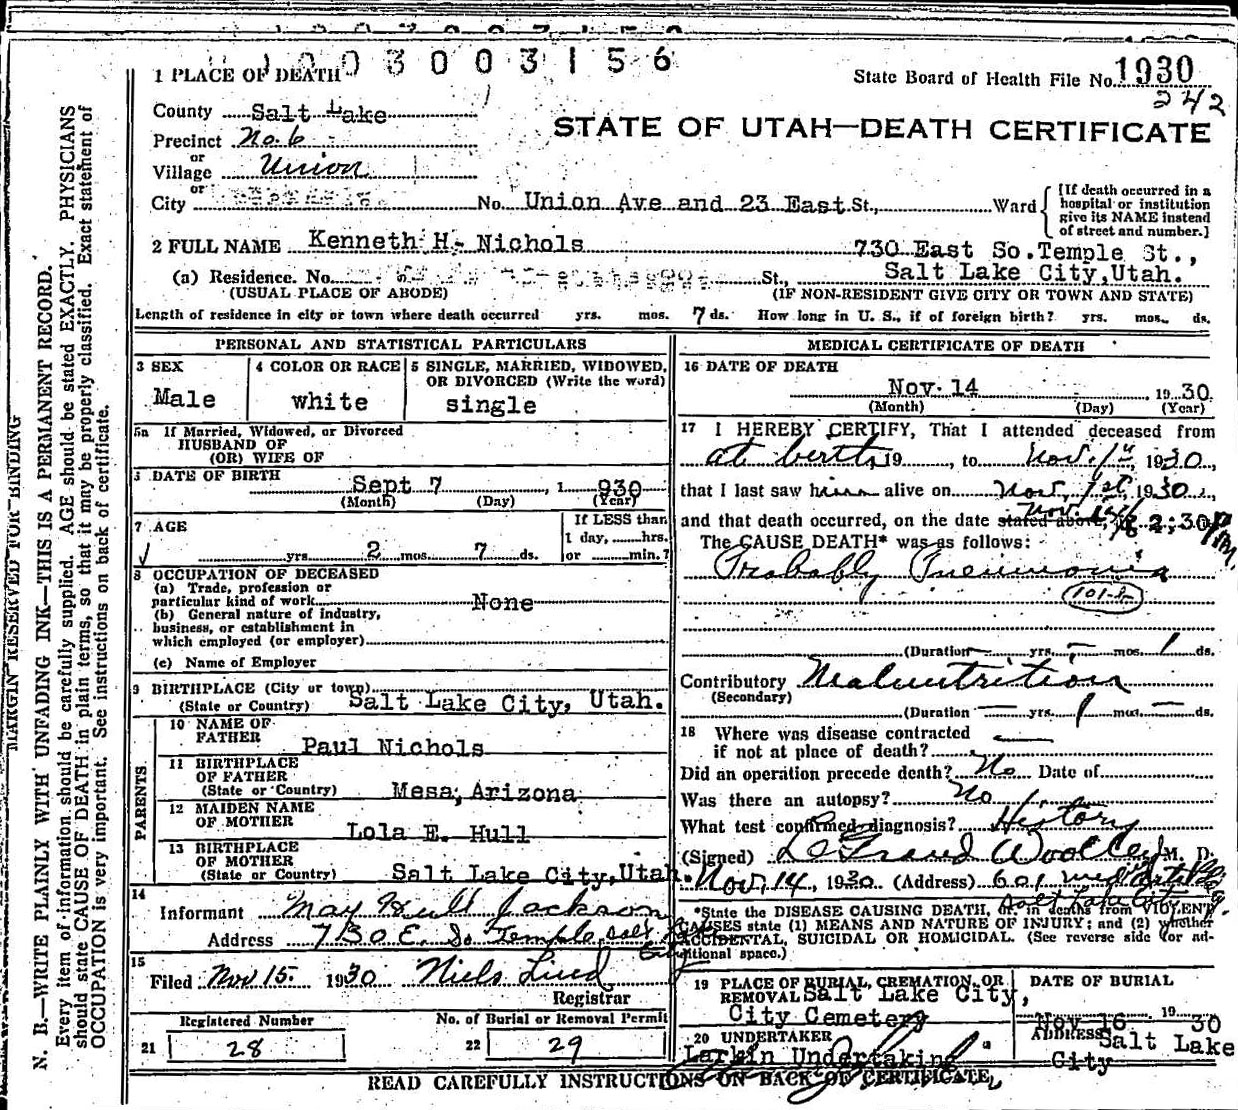 1003003156
1 PLACE OF DEATH
State Board of Health File No. 1930
242
County Salt Lake
STATE OF UTAH—DEATH CERTIFICATE
Precinct No. 6
or
Village Union
or
City No. Union Ave and 23 East St., Ward
[If death occurred in a
hospital or institution
give its NAME instead
of street and number.]
2 FULL NAME Kenneth H. Nichols
730 East So. Temple St.,
(a) Residence. No. St., Salt Lake City, Utah.
(USUAL PLACE OF ABODE) (IF NON-RESIDENT GIVE CITY OR TOWN AND STATE)
Length of residence in city or town where death occurred yrs. mos. 7 ds. How long in U. S., if of foreign birth? yrs. mos. ds.
PERSONAL AND STATISTICAL PARTICULARS
3 SEX
Male
4 COLOR OR RACE
white
5 SINGLE, MARRIED, WIDOWED,
OR DIVORCED (Write the word)
single
5a If Married, Widowed, or Divorced
HUSBAND OF
(OR) WIFE OF
6 DATE OF BIRTH
Sept 7, 1930
(Month) (Day) (Year)
7 AGE
yrs. 2 mos. 7 ds.
If LESS than
1 day, hrs.
or min.?
8 OCCUPATION OF DECEASED
(a) Trade, profession or
particular kind of work None
(b) General nature of industry,
business, or establishment in
which employed (or employer)
(c) Name of Employer
9 BIRTHPLACE (City or town)
(State or Country) Salt Lake City, Utah.
PARENTS
10 NAME OF
FATHER Paul Nichols
11 BIRTHPLACE
OF FATHER
(State or Country) Mesa, Arizona
12 MAIDEN NAME
OF MOTHER Lola E. Hull
13 BIRTHPLACE
OF MOTHER
(State or Country) Salt Lake City, Utah.
14
Informant May Hull Jackson
Address 730 E. So Temple, Salt Lake
City
15
Filed Nov 15 1930 Niels Lind
Registrar
Registered Number
21 28
No. of Burial or Removal Permit
22 29
MEDICAL CERTIFICATE OF DEATH
16 DATE OF DEATH
Nov. 14, 1930.
(Month) (Day) (Year)
17 I HEREBY CERTIFY, That I attended deceased from
at birth, 19, to Nov. 1st, 1930,
that I last saw him alive on Nov. 1st, 1930,
and that death occurred, on the date stated above, Nov. 14/ 2:30 P.M.
The CAUSE DEATH* was as follows:
Probably Pneumonia
(Duration — yrs. — mos. 1 ds.
Contributory Malnutrition
(Secondary)
(Duration — yrs. 1 mos. — ds.
18 Where was disease contracted
if not at place of death? —
Did an operation precede death? No Date of
Was there an autopsy? No
What test confirmed diagnosis? History
(Signed) LeGrand Woolley, M. D.
Nov. 14, 1930 (Address) 601 Med Arts Bldg.
Salt Lake City
*State the DISEASE CAUSING DEATH, or in deaths from VIOLENT
CAUSES state (1) MEANS AND NATURE OF INJURY; and (2) whether
ACCIDENTAL, SUICIDAL OR HOMICIDAL. (See reverse side for ad-
ditional space.)
19 PLACE OF BURIAL, CREMATION, OR
REMOVAL Salt Lake City,
City Cemetery
DATE OF BURIAL
Nov 16 1930
20 UNDERTAKER
Larkin Undertaking
ADDRESS Salt Lake
City
READ CAREFULLY INSTRUCTIONS ON BACK OF CERTIFICATE
MARGIN RESERVED FOR BINDING
N. B.—WRITE PLAINLY WITH UNFADING INK—THIS IS A PERMANENT RECORD.
Every item of information should be carefully supplied. AGE should be stated EXACTLY. PHYSICIANS
should state CAUSE OF DEATH in plain terms, so that it may be properly classified. Exact statement of
OCCUPATION is very important. See instructions on back of certificate.